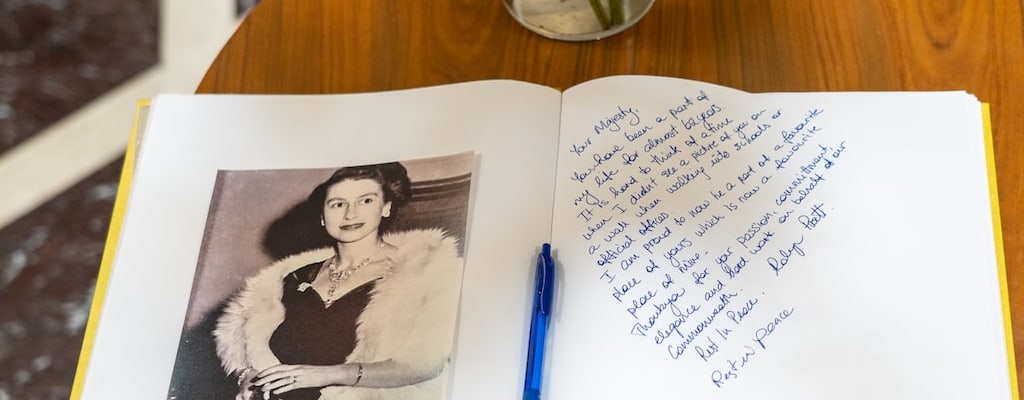 Your Majesty,
You have been a part of
my life for almost 62 years.
It is hard to think of a time
when I didn't see a picture of you on
a wall when walking into schools or
official offices.
I am proud to now be a part of a favourite
place of yours which is now a favourite
place of mine.
Thankyou for your passion, commitment,
elegance and hard work on behalf of our
Commonwealth.
Rest In Peace. Robyn
Rest in peace